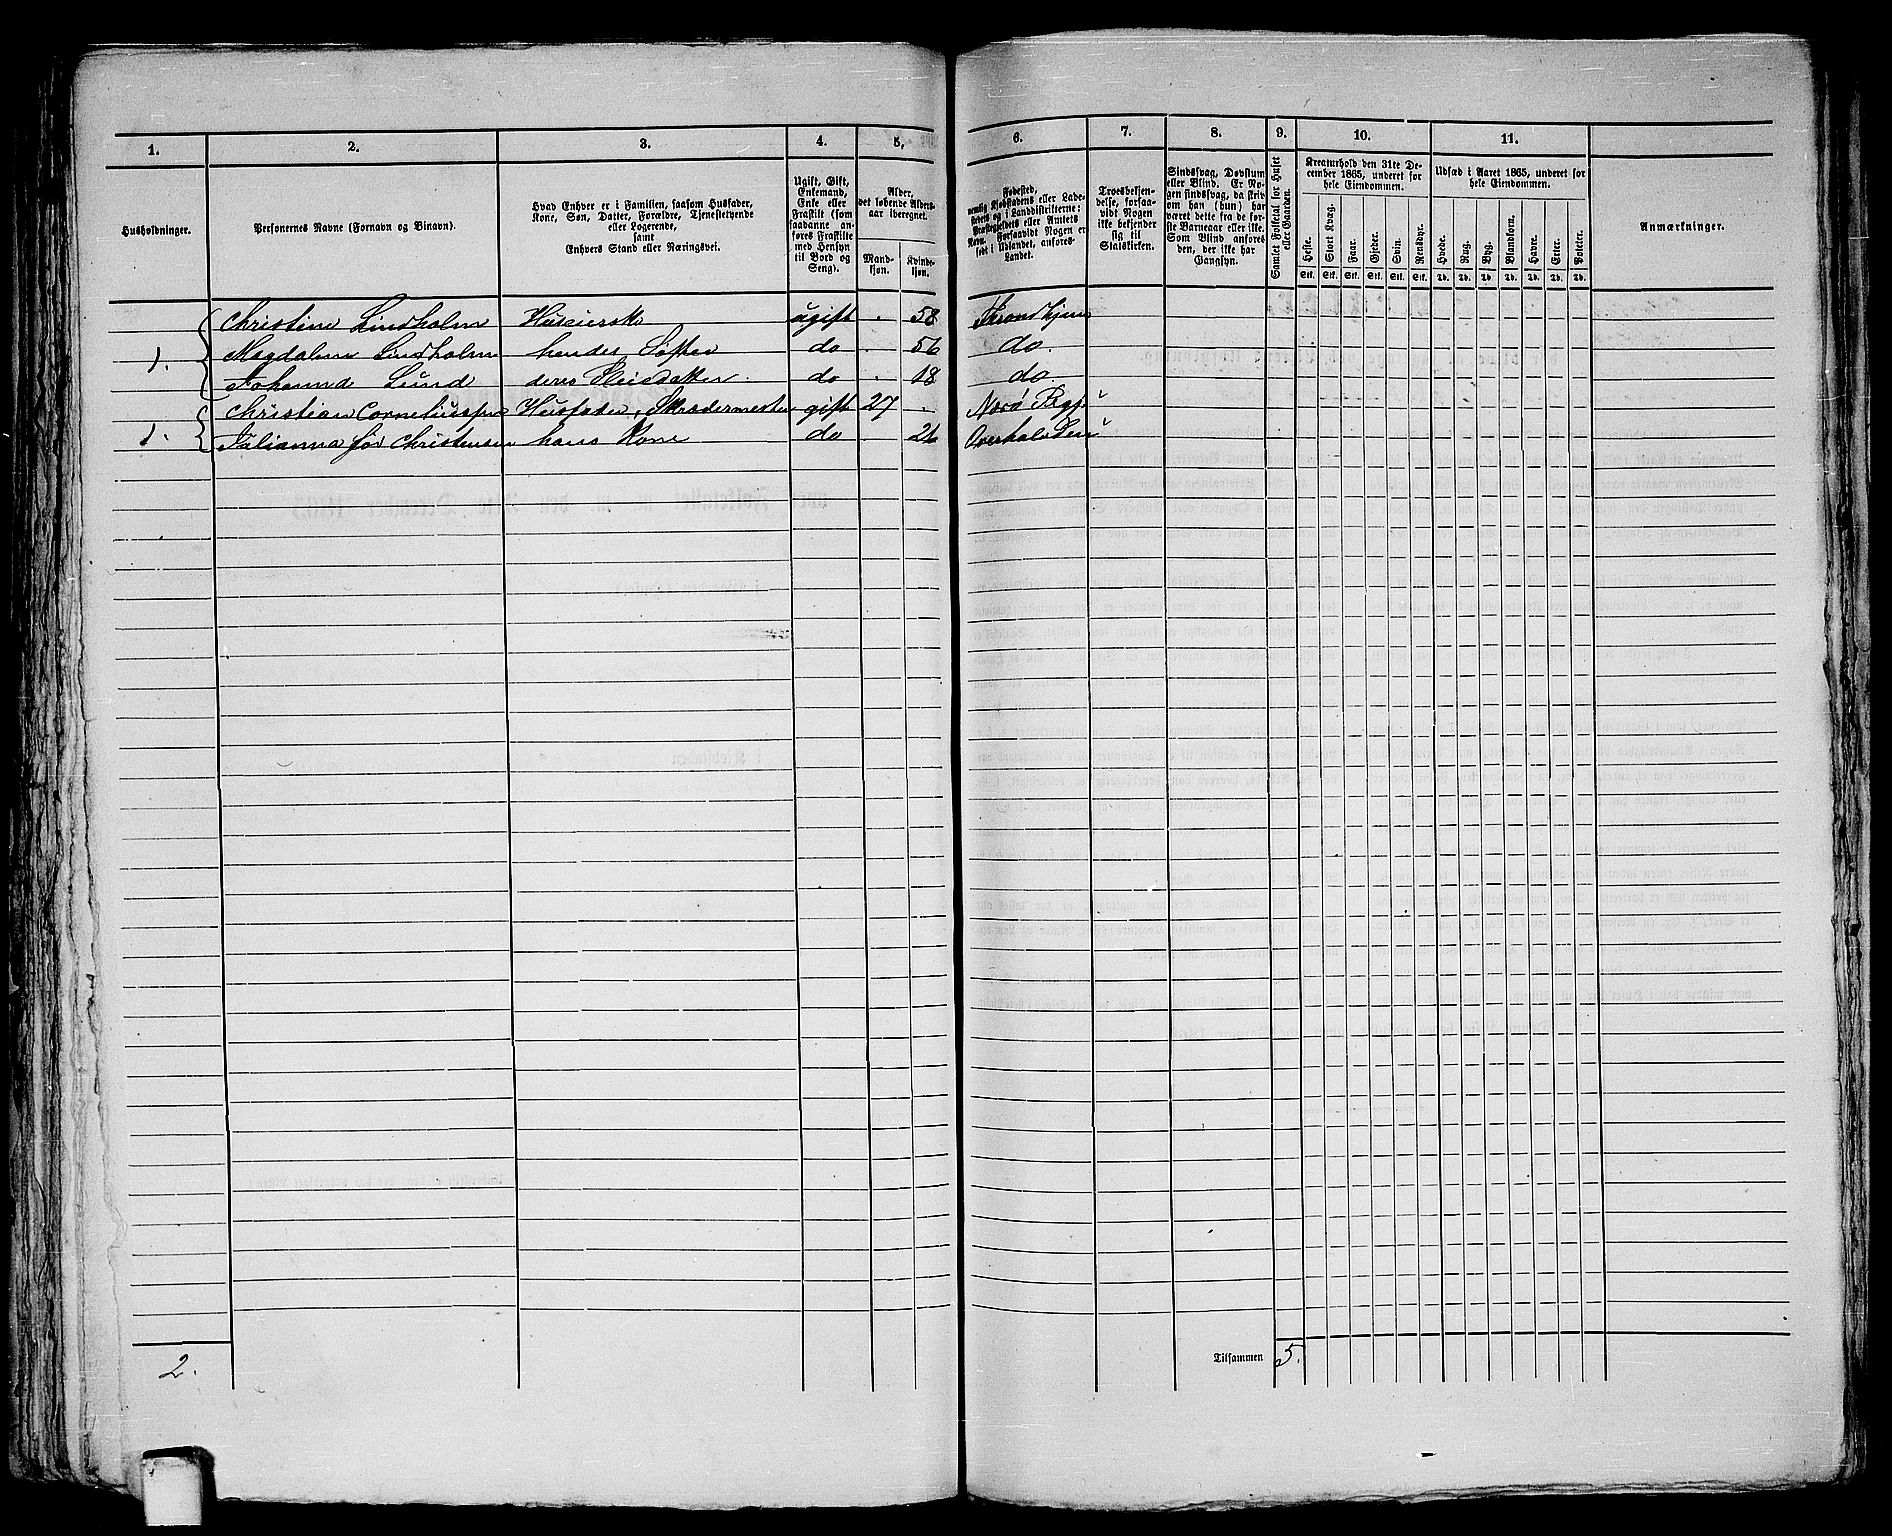 1.
2.
3.
4.
5.
6.
7.
8.
9.
10.
11.
Husholdninger.
Personernes Navne (Fornavn og Binavn).
Hvad Enhver er i Familien, saasom Husfader,
Kone, Søn, Datter, Forældre, Tjenestetyende
eller Logerende,
samt
Enhvers Stand eller Næringsvei.
Ugift, Gift,
Enkemand,
Enke eller
Fraskilt (som
saadanne an-
føres Fraskilte
med Hensyn
til Bord og
Seng).
Alder,
det løbende Alders-
aar iberegnet.
Mand-
kjøn.
Kvinde-
kjøn.
Fødested,
nemlig Kjøbstadens eller Lade-
stedets og i Landdistrikterne:
Præstegjeldets eller Amtets
Navn. Forsaavidt Nogen er
født i Udlandet, anføres
Landet.
Troesbekjen-
delse, forsaa-
vidt Nogen
ikke bekjender
sig til
Statskirken.
Sindssvag, Døvstum
eller Blind. Er No-
gen sindssvag, da skriv
om han (hun) har
været dette fra de før-
ste Barneaar eller ikke.
Som Blind anføres
den, der ikke har
Gangsyn.
Samlet Folketal for Huset
eller Gaarden.
Kreaturhold den 31te De-
cember 1865, underet for
hele Eiendommen.
Heste.
Stort Kvæg.
Faar.
Gjeder.
Svin.
Rensdyr.
Stk. Stk. Stk. Stk. Stk. Stk.
Udsæd i Aaret 1865, underet for
hele Eiendommen.
Hvede.
Rug.
Byg.
Blandkorn.
Havre.
Erter.
Poteter.
Td. Td. Td. Td. Td. Td. Td.
Anmærkninger.
Christine Lindholm Huseierske ugift . 58 Throndhjem
1. Magdalene Lindholm hendes Søster do . 56 do.
Lund deres Pleiedatter . do . 18 do.
Christian Husfader, Skrædermester gift 27 . Nærø
1. Christensen hans Kone do 26 Overhalden
2.
Tilsammen 5.